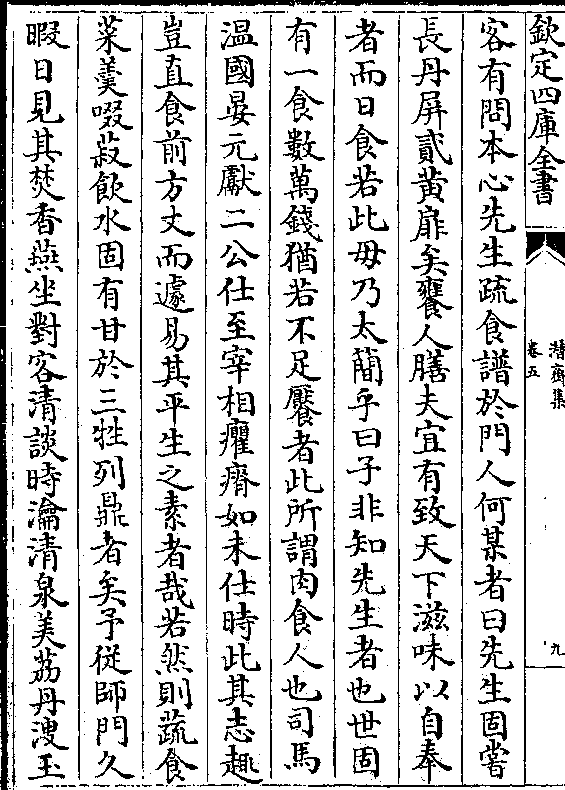 欽定四庫全書
潛齋集
卷五
九
客有問本心先生疏食譜於門人何某者曰先生固嘗
長丹屏貳黄扉矣饔人膳夫宜有致天下滋味以自奉
者而日食若此毋乃太簡乎曰子非知先生者也世固
有一食數萬錢猶若不足饜者此所謂肉食人也司馬
温國晏元獻二公仕至宰相癯瘠如未仕時此其志趣
豈直食前方丈而遽易其平生之素者哉若然則蔬食
菜羮啜菽飲水固有甘於三牲列鼎者矣予從師門久
暇日見其焚香燕坐對客清談時瀹清泉美茘丹溲玉